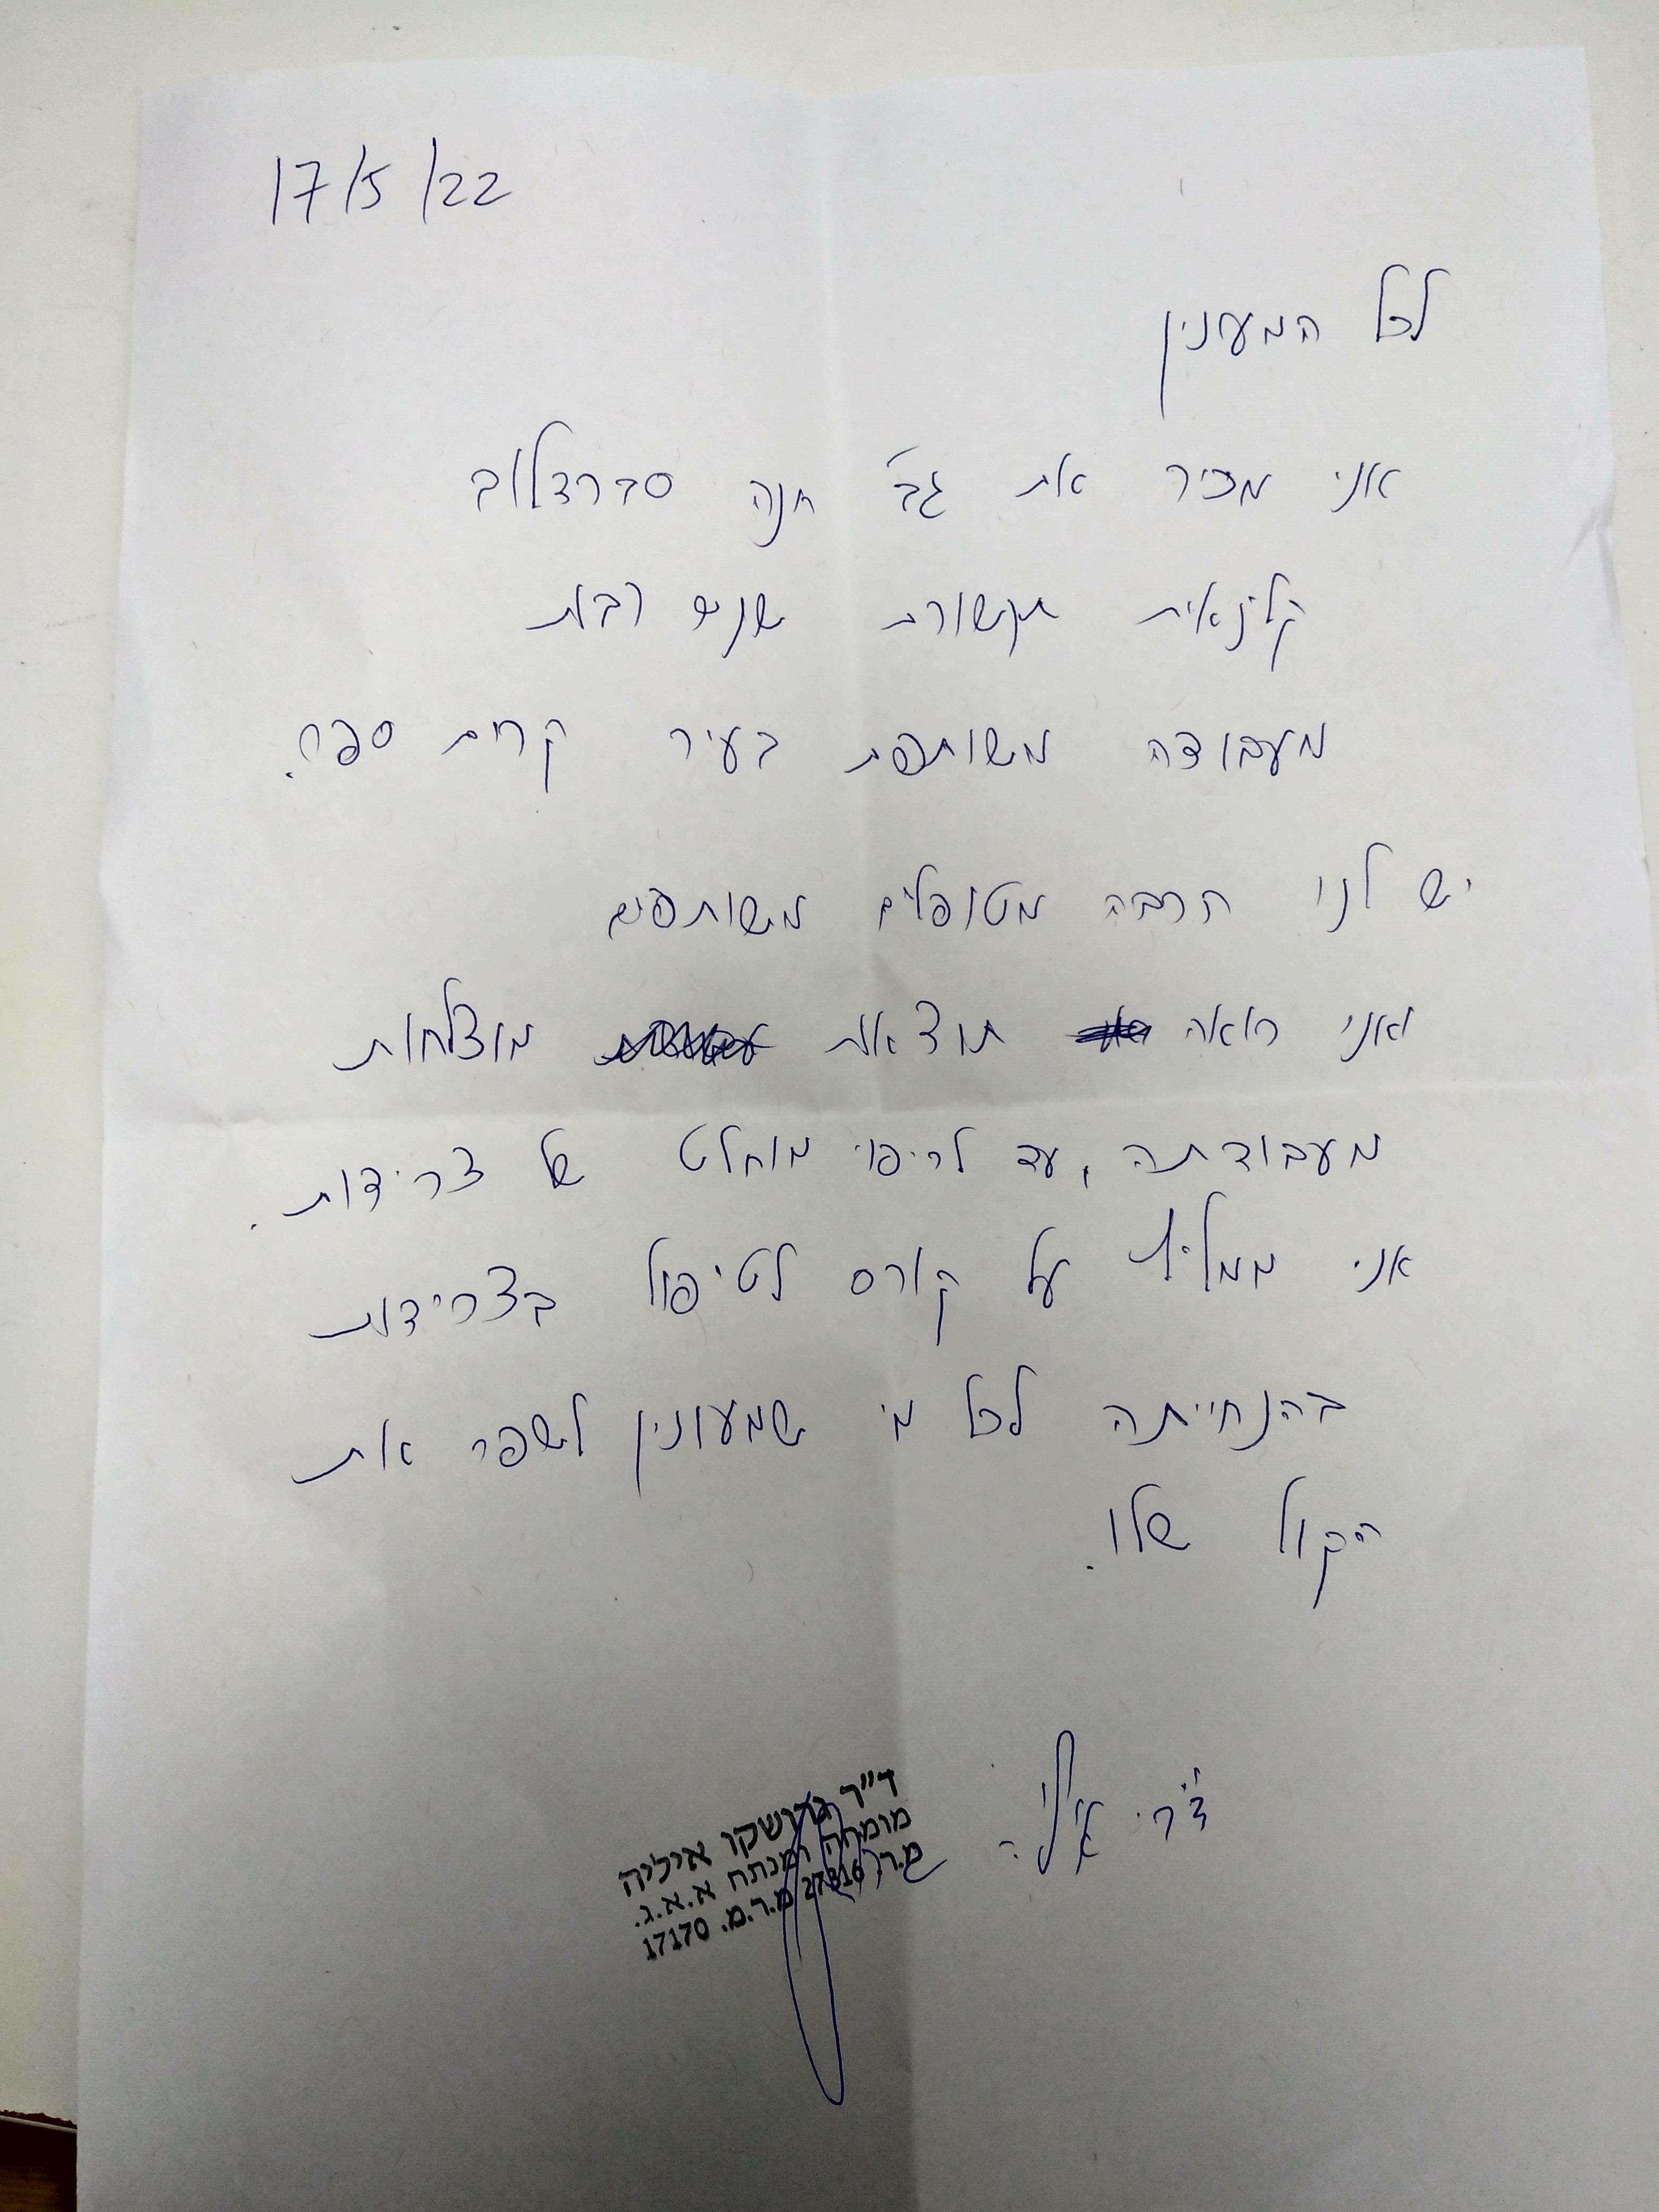 17/5/22
לכל המעונין
אני מכיר את גב' חנה סברדלוב
קלינאית תקשורת שנים רבות
מעבודה משותפת בעיר קרית ספר.
יש לנו הרבה מטופלים משותפים
ואני רואה תוצאות מוצלחות
מעבודתה, עד לריפוי מוחלט של צרידות.
אני ממליץ על קורס לטיפול בצרידות
בהנחייתה לכל מי שמעונין לשפר את
הקול שלו.
ד"ר איליה
ד"ר גרושקו איליה
מומחה ומנתח א.א.ג.
מ.ר. 27816 מ.ר.מ. 17170